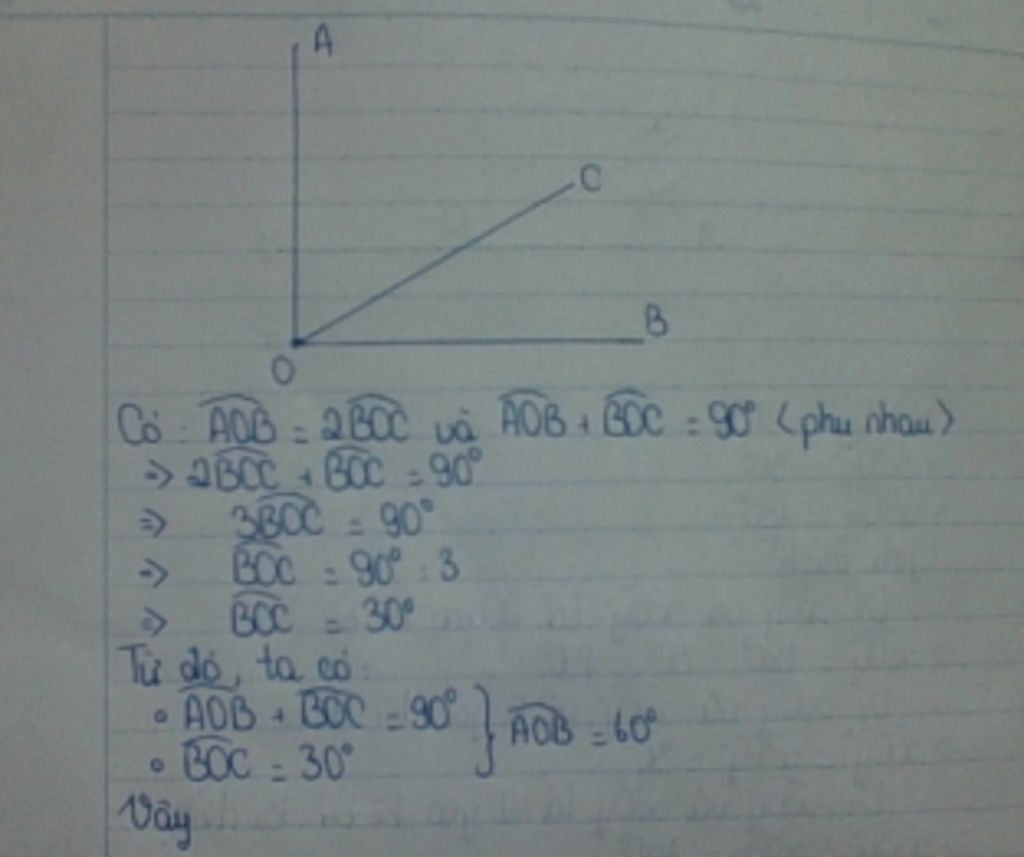 A
C
B
O
Có : AOB = 2BOC và AOB + BOC = 90° (phụ nhau)
=> 2BOC + BOC = 90°
=> 3BOC = 90°
=> BOC = 90° : 3
=> BOC = 30°
Từ đó, ta có:
• AOB + BOC = 90° } AOB = 60°
• BOC = 30°
Vậy